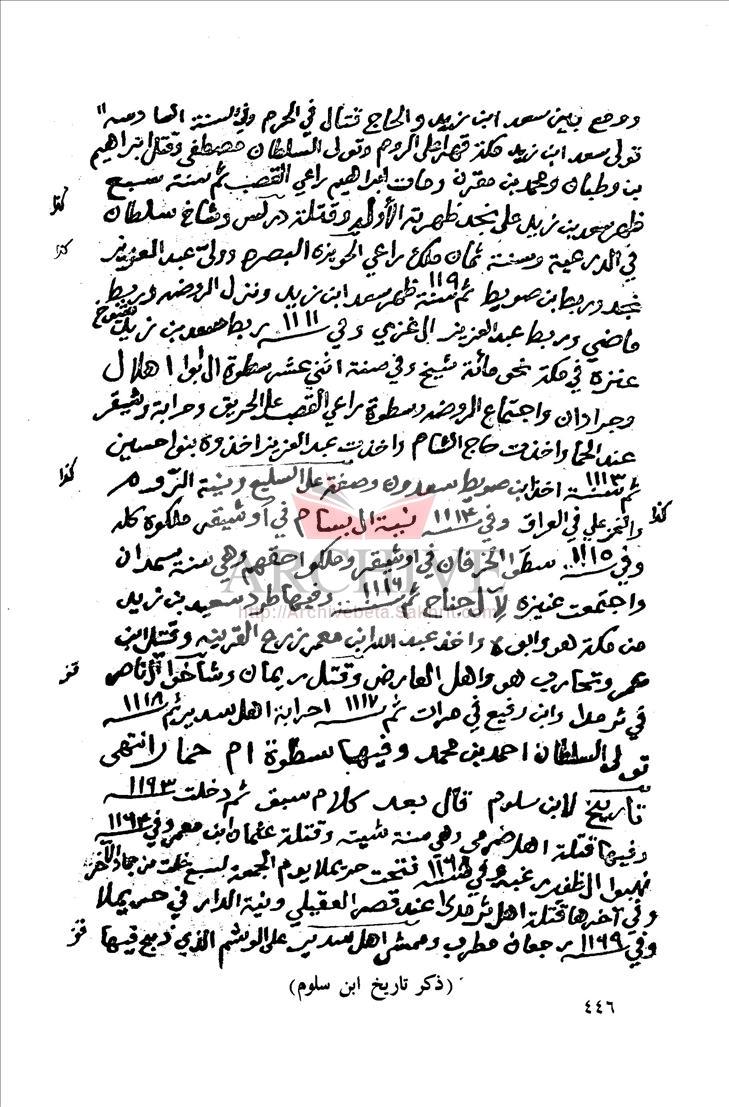 ووقع بين سعد ابن زيد والحاج قتال في الحرم وفي السنة السادسة
تولى سعد ابن زيد مكة قهرا على الروم وتولى السلطان مصطفى وقتل ابراهيم
بن وطبان ومحمد بن مقرن ومات ابراهيم راعي القصب ثم سنة سبع
ظهر سعد بن زيد على نجد ظهرته الأولى وقتلة دركس وشاخ سلطان
كذا
في الدرعية وسنة ثمان ملك راعي الحويزة البصره وولي عبد العزيز
كذا
نجد وربط بن صويط ثم سنة ١١٠٩ ظهر سعد ابن زيد ونزل الروضه وربط
ماضي وربط عبد العزيز ال غزي وفي ١١١١ ربط سعد بن زيد شيوخ
عنزة في مكة نحو مائة شيخ وفي سنة اثني عشر سطوة ال ابوا هلال
وجرادان واجتماع الروضه وسطوة راعي القصب على الحريق وحرابة وشيقر
عند الحما واخذت حاج الشام واخذت عبد العزيز اخذوه بنوا حسين
ثم سنة ١١١٣ اخذ ابن صويط سعدون وصفقة على السليع وبنية الروم
كذا
والغز علي في العراق وفي ١١١٤ نية ال بسام في أوشيقر ملكوه كله
كذا
وفي ١١١٥ سطى الخرفان في اوشيقر وملكوا حقهم وهي سنة سمدان
واجتمعت عنيزه لآل جناح ثم سنة ١١١٦ وفيها طرد سعيد بن زيد
من مكة هو وابوه واخذ عبد الله ابن معمر زرع القرينه وقتل ابن
عمر وتحارب هو واهل العارض وقتل ريمان وشاخوا ال ناصر
في ثرمدا وابن رفيع في مرات ثم ١١١٧ احرابة اهل سدير ثم ١١١٨
تولى السلطان احمد بن محمد وفيها سطوة ام حمار انتهى
تاريخ لابن سلوم قال بعد كلام سبق ثم دخلت ١١٩٣
وفيها قتلة اهل ضرمى وهي سنة شيته وقتلة عثمان ابن معمر وفي ١١٦٣
نهبوا ال ظفير غبيه وفي ١١٦٨ فتحت حريملا يوم الجمعة لسبع خلت من جماد الآخر
وفي آخرها قتلة اهل ثرمدا عند قصر العقيلي ونية الدار في حريملا
وفي ١١٦٩ رجعان مطرب وممشى اهل سدير على الوشم الذي ذبح فيها
(ذكر تاريخ ابن سلوم)
٤٤٦
ARCHIVE
http://Archivebeta.Sakhrit.com